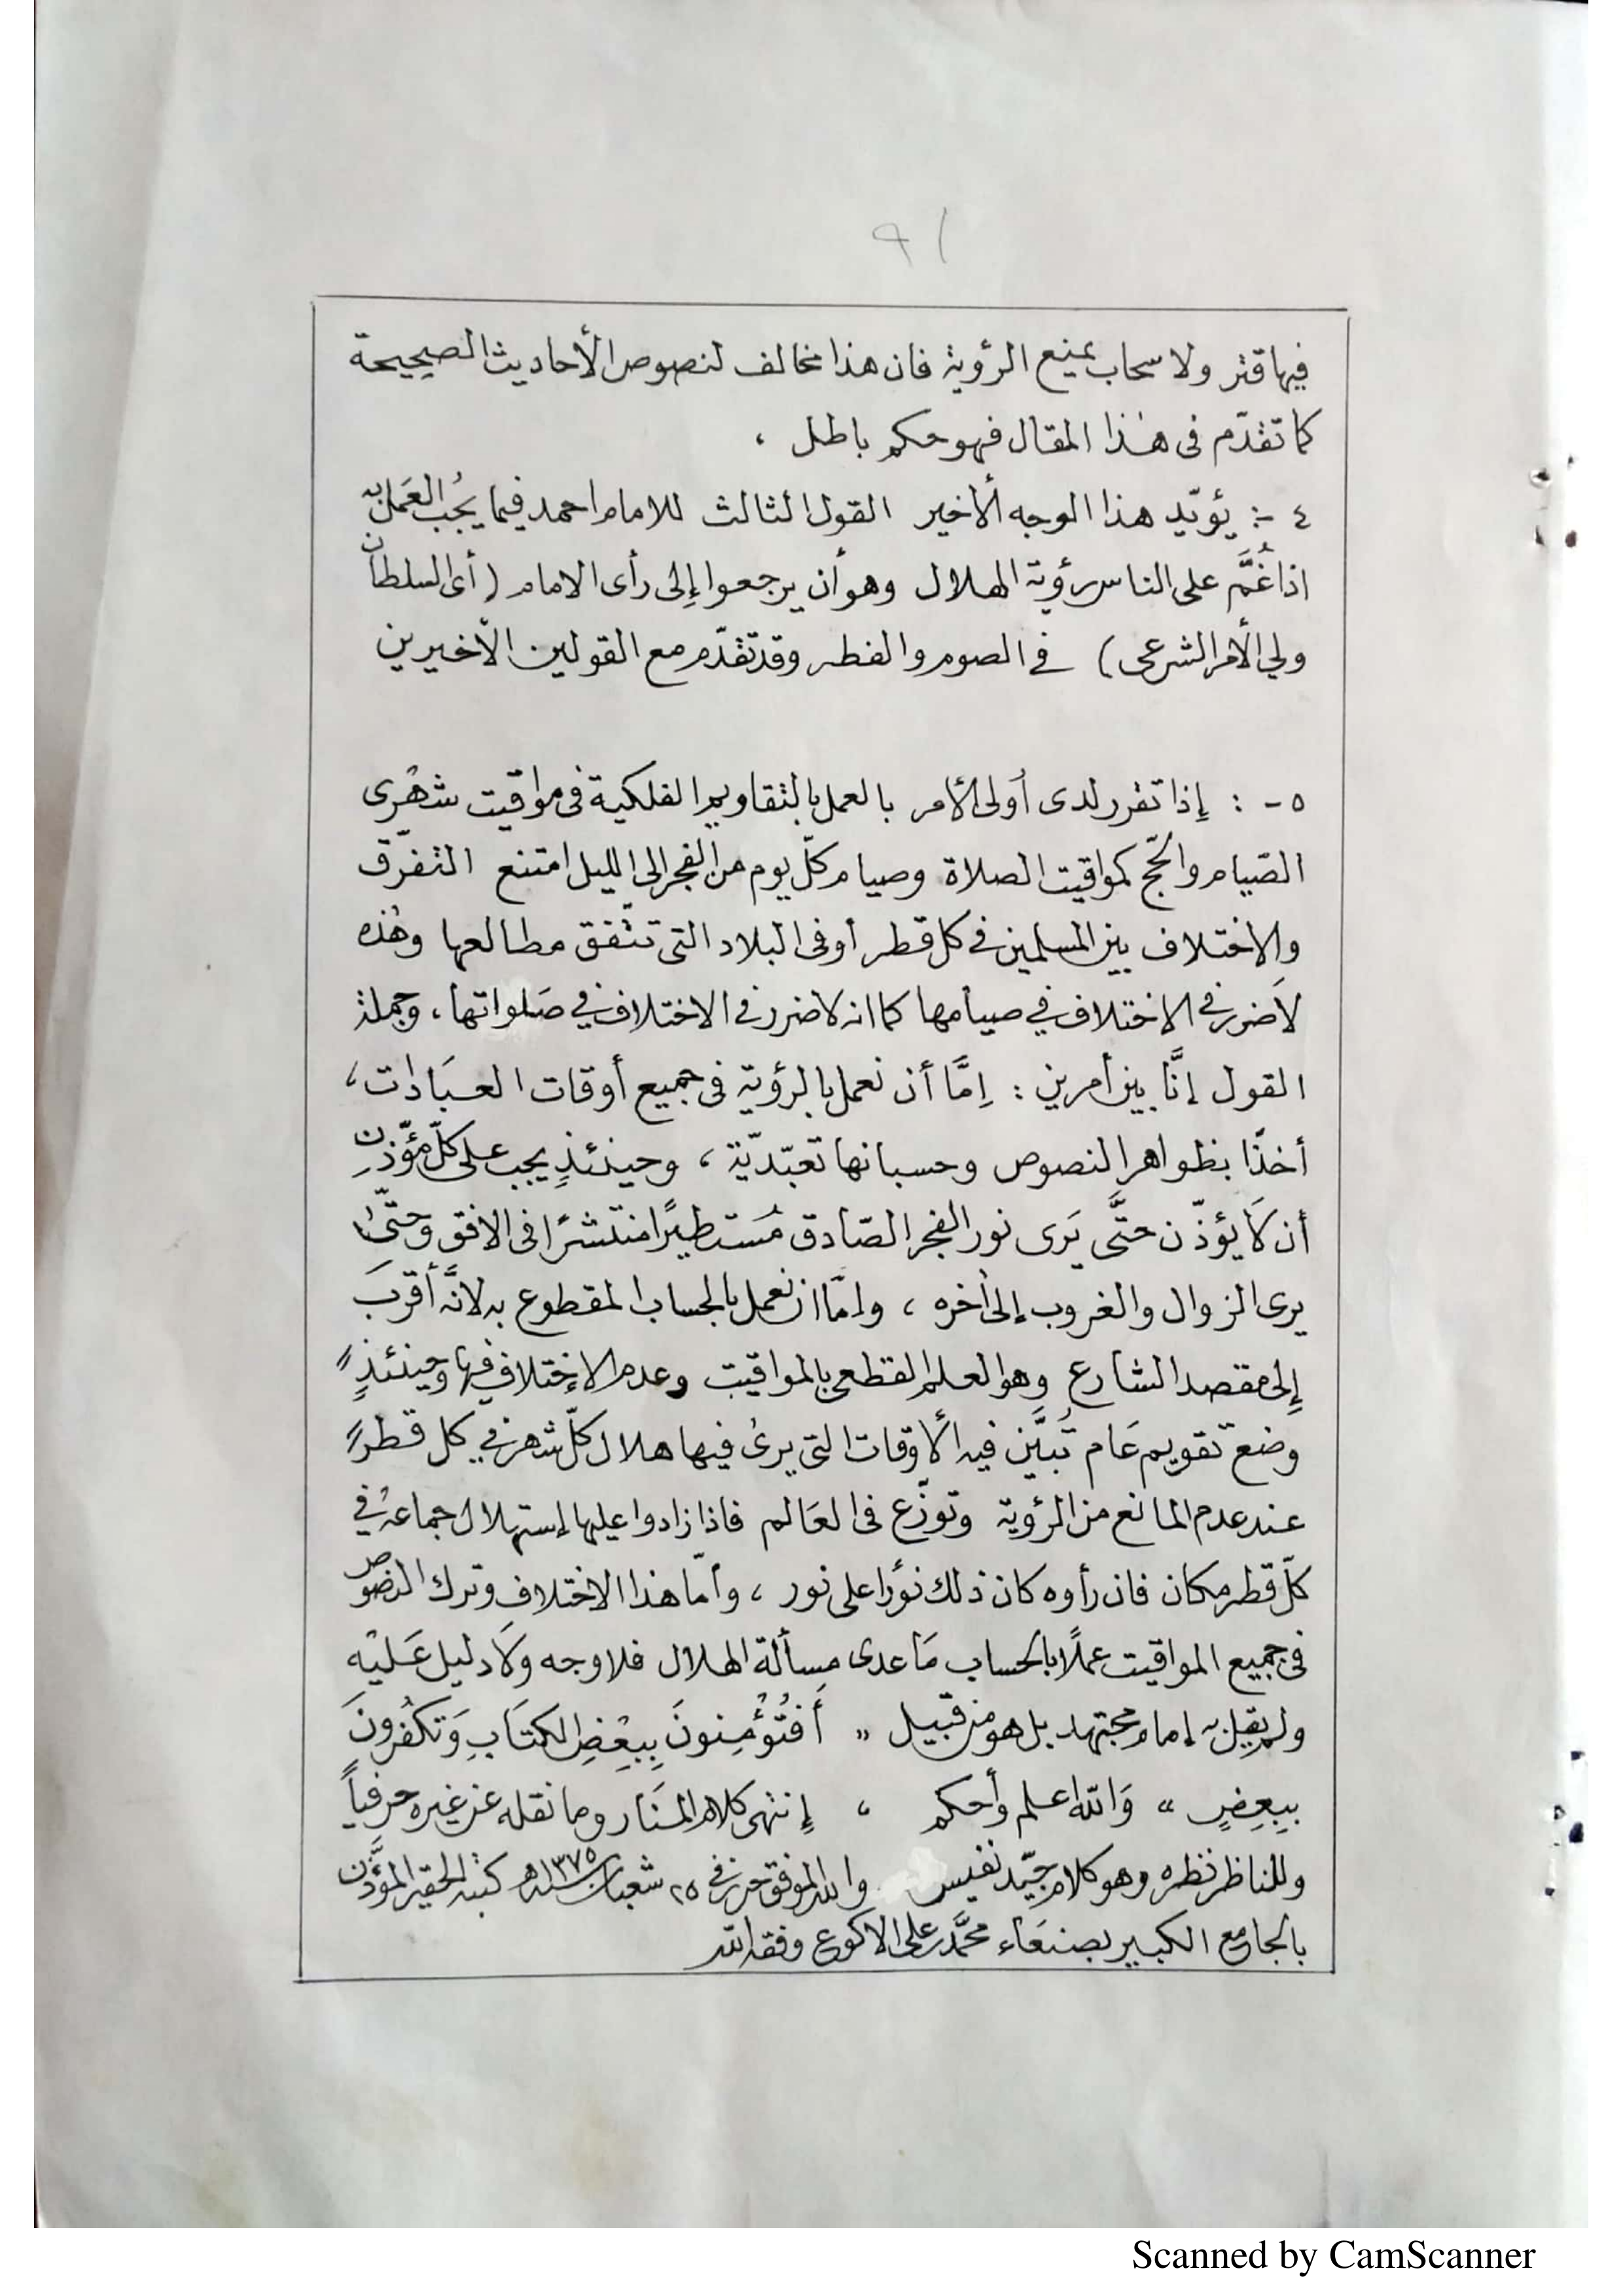 ٩١
فيها قتر ولا سحاب يمنع الرؤية فان هذا مخالف لنصوص الأحاديث الصحيحة
كما تقدّم فى هٰذا المقال فهو حكم باطل ،
٤ -: يؤيّد هذا الوجه الأخير القول الثالث للامام احمد فيما يجُب العَمل به
اذا غُمَّ على الناس رؤية الهلال وهو أن يرجعوا إِلى رأى الامام (أى السلطان
ولي الأمر الشرعى) في الصوم والفطر وقد تقدّم مع القولين الأخيرين
٥ - : إِذا تقرر لدى أولى الأمر بالعمل بالتقاويم الفلكية فى مواقيت شهْرى
الصّيام والحجّ كمواقيت الصلاة وصيام كلّ يوم من الفجر الى الليل امتنع التفرّق
والاختلاف بين المسلمين في كل قطر أو فى البلاد التى تتّفق مطالعها وهٰذه
لاَ ضرر في الاختلاف في صيامها كما انه لا ضرر في الاختلاف في صَلواتها ، وجملة
القول إنَّا بين أمرين : اِمَّا أن نعمل بالرؤية فى جميع أوقات العبَادات ،
أخذًا بظواهر النصوص وحسبانها تعبّديّة ، وحينئذٍ يجب على كلّ مؤّذنِ
أن لاَ يؤذّن حتَّى يَرى نور الفجر الصّادق مُستطيرًا منتشرًا فى الافق وحتّىٰ
يرى الزوال والغروب إلى أخره ، وامّا ان نعمل بالحساب المقطوع به لانَّه أقربَ
إِلى مقصد الشارع وهو العلم القطعى بالمواقيت وعدم الإختلاف فيها وحينئذٍ
وضع تقويم عَام تُبيَّن فيه الأوقات التى يرىٰ فيها هلال كلّ شهر في كل قطر
عند عدم المانع من الرؤية وتوزّع فى العَالم فاذا زادوا عليها إستهلال جماعة في
كلّ قطر مكان فان رأوه كان ذلك نورًا على نور ، وأمّا هذا الاختلاف وترك النصوص
فى جميع المواقيت عملًا بالحساب مَا عدى مسألة الهلال فلا وجه ولاَ دليل عَليْه
ولم يقل به إمام مجتهد بل هو من قبيل " أَفتُؤْمِنونَ بِبعْضِ الكتَابِ وَتكفُرونَ
بِبعِضٍ " وَالله اعلم وأحكم ، إِنتهى كلام المنَار وما نقله عن غيره حرفياً
وللناظر نظره وهو كلام جيّد نفيس والله الموفق حرر في ٢٥ شعبان سنة ١٣٧٥هـ كتبه الحقير المؤذّن
بالجامع الكبير بصنعَاء محمَّد على الاكوع وفقه الله
Scanned by CamScanner